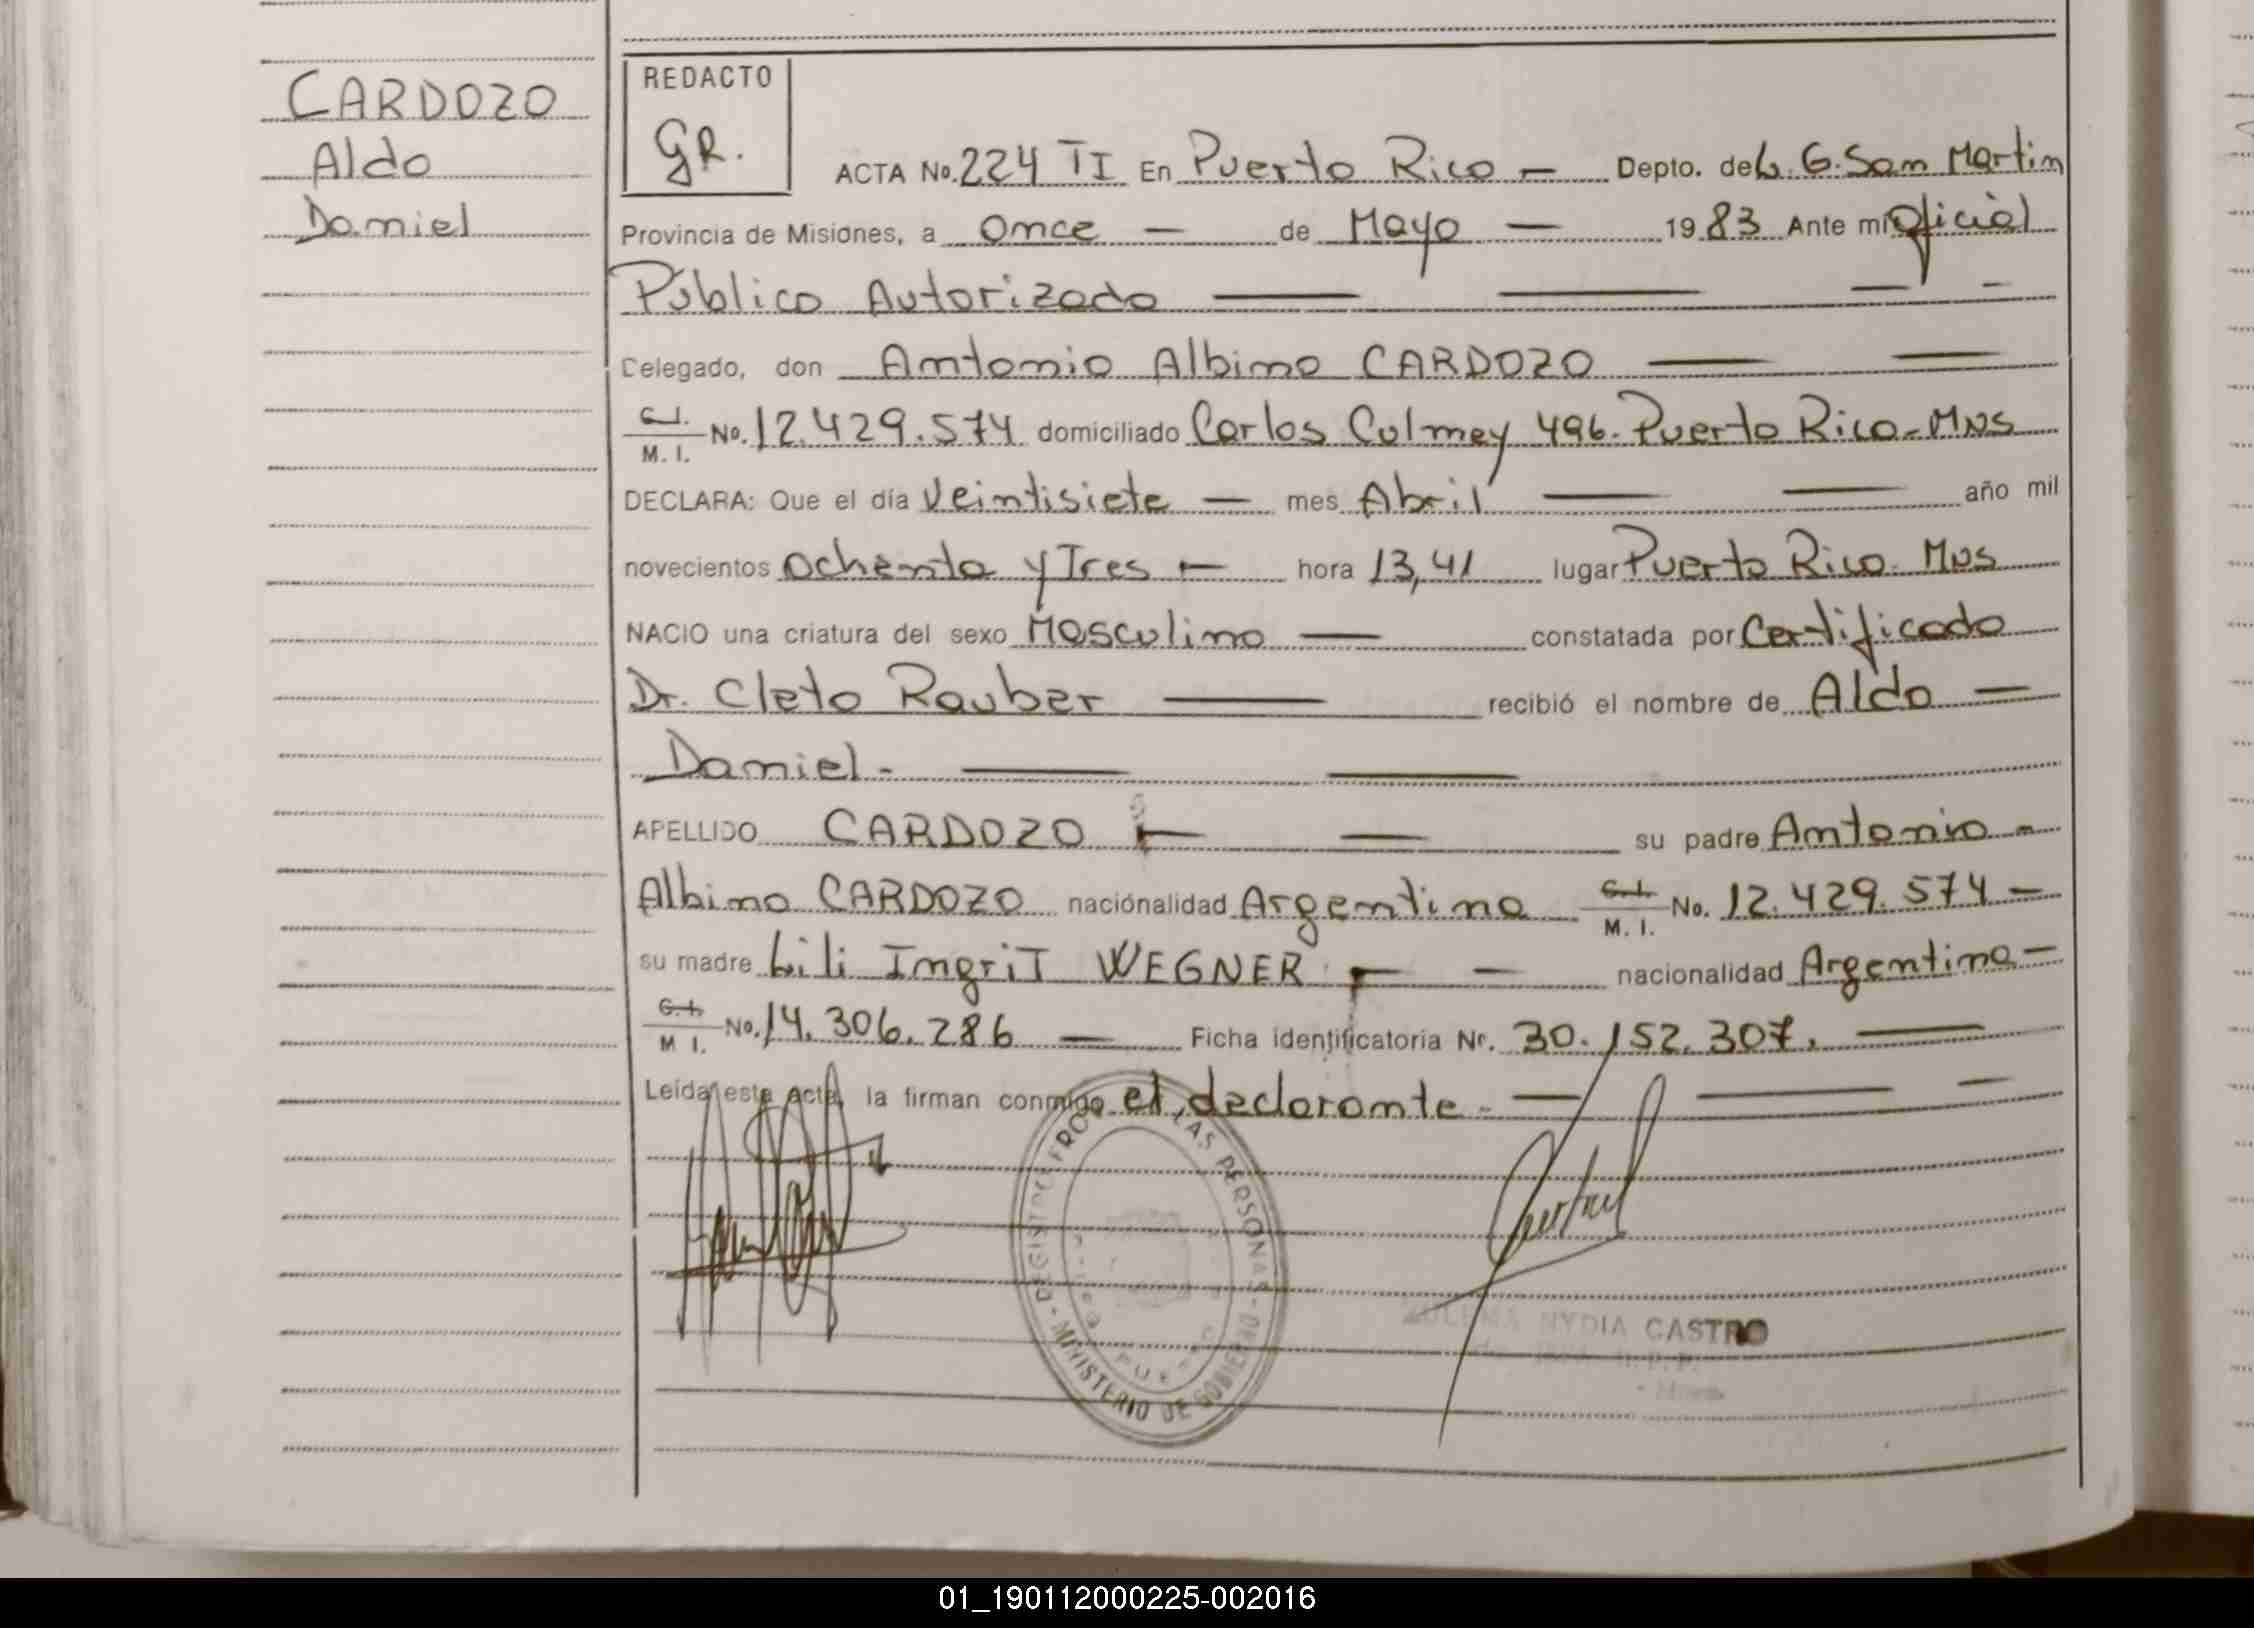 CARDOZO
Aldo
Daniel
REDACTO
GR.
ACTA No. 224 TI En Puerto Rico — Depto. de L. G. San Martin
Provincia de Misiones, a Once — de Mayo — 1983 Ante mi Oficial
Público Autorizado — — — -
Delegado, don Antonio Albino CARDOZO — —
C.I. / M. I. No. 12.429.574 domiciliado Carlos Culmey 496. Puerto Rico-MNS
DECLARA: Que el día Veintisiete — mes Abril — — año mil
novecientos Ochenta y Tres — hora 13,41 lugar Puerto Rico. Mns
NACIO una criatura del sexo Masculino — constatada por Certificado
Dr. Cleto Rauber — recibió el nombre de Aldo —
Daniel.- — —
APELLIDO CARDOZO — — su padre Antonio -
Albino CARDOZO nacionalidad Argentina C.I. / M. I. No. 12.429.574 —
su madre Lili IngriT WEGNER — — nacionalidad Argentina —
C.I. / M I. No. 14.306.286 — Ficha identificatoria Nr. 30.152.307. —
Leida este acta, la firman conmigo el, declarante - — — -
REGISTRO PROV. DE LAS PERSONAS - MINISTERIO DE GOBIERNO
ZULEMA NYDIA CASTRO
01_190112000225-002016